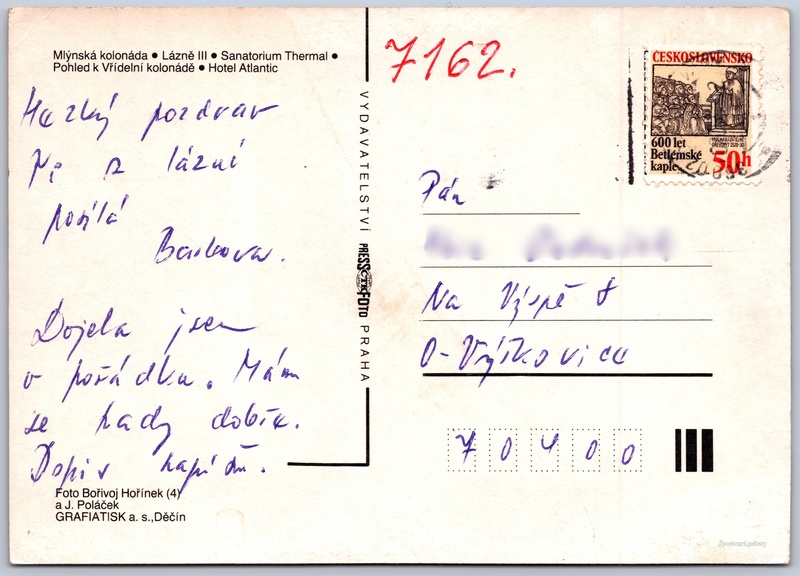 Mlýnská kolonáda ● Lázně III ● Sanatorium Thermal ●
Pohled k Vřídelní kolonádě ● Hotel Atlantic
Hezký pozdrav
z lázní
posílá
Dojela jsem
v pořádku. Mám
se tady dobře.
Dopis napíšu.
Foto Bořivoj Hořínek (4)
a J. Poláček
GRAFIATISK a. s., Děčín
VYDAVATELSTVÍ PRESSFOTO PRAHA
7162.
ČESKOSLOVENSKO
600 let
Betlémské
kaple
50h
Pán
Na Výspě 8
O-Výškovice
70400